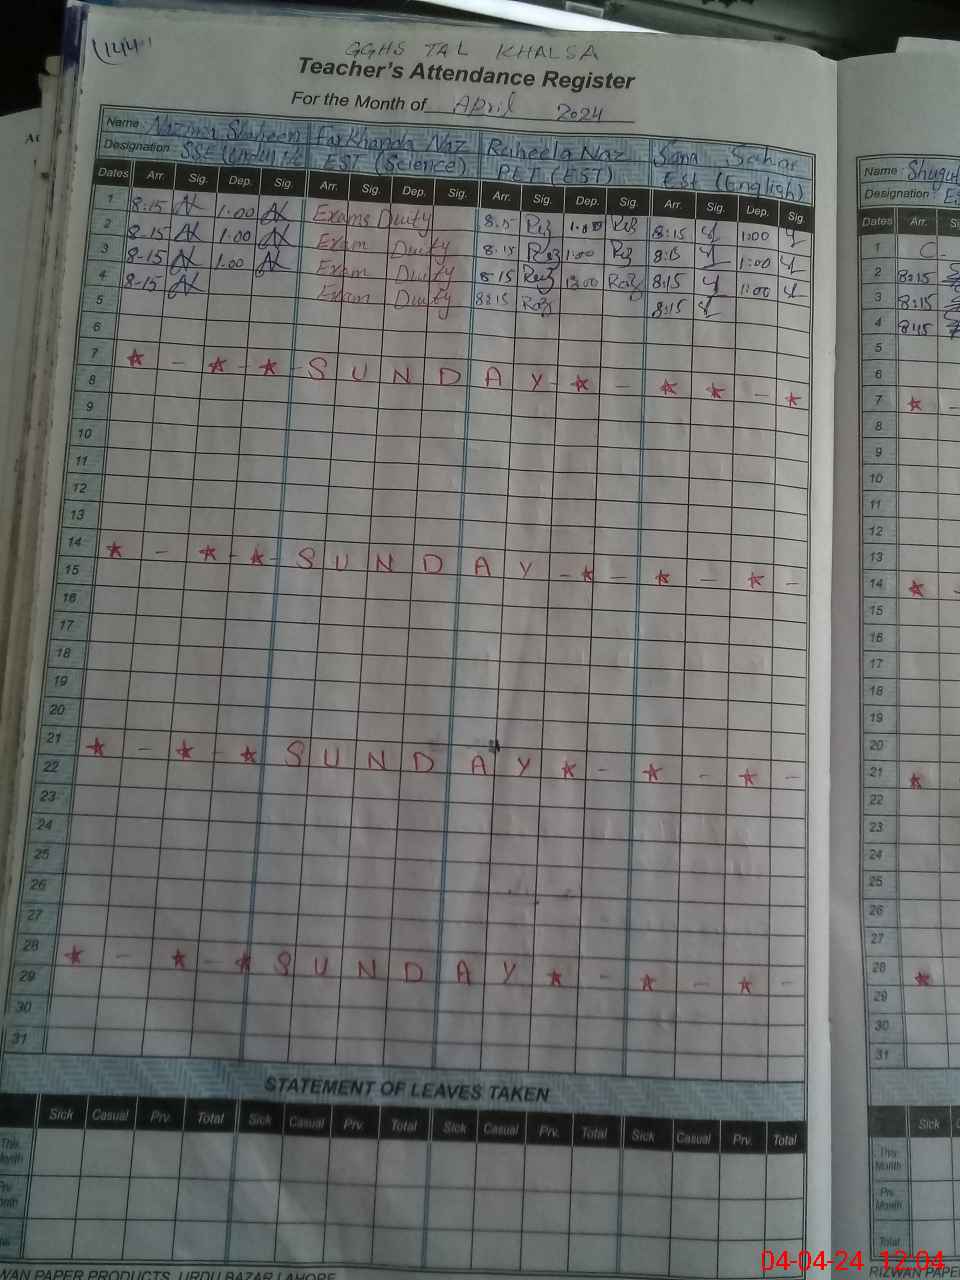 144
GGHS TAL KHALSA
Teacher's Attendance Register
For the Month of April 2024
Name: Nazma Shaheen Farkhanda Naz Raheela Naz Sana Sahar
Designation: EST (Science) PET (EST) Est (English)
Dates Arr. Sig. Dep. Sig. Arr. Sig. Dep. Sig. Arr. Sig. Dep. Sig. Arr. Sig. Dep. Sig.
1 8-15 1:00 Exams Duity 8.15 1:00 8:15 1:00
2 8-15 1:00 Exam Duity 8.15 1:00 8:15 1:00
3 8-15 1:00 Exam Duity 8-15 8:15 1:00
4 8-15 Exam Duity 8:15 8:15
5
6
7 SUNDAY
8
9
10
11
12
13
14 SUNDAY
15
16
17
18
19
20
21 SUNDAY
22
23
24
25
26
27
28 SUNDAY
29
30
31
STATEMENT OF LEAVES TAKEN
Sick Casual Prv. Total Sick Casual Prv. Total Sick Casual Prv. Total Sick Casual Prv. Total
This Month
WAN PAPER PRODUCTS, URDU BAZAR LAHORE
Name:
Designation:
Dates Arr.
1 C
2 8:15
3 8:15
4 8:15
5
6
7
8
9
10
11
12
13
14
15
16
17
18
19
20
21
22
23
24
25
26
27
28
29
30
31
Sick
This Month
Prv. Month
Total
RIZWAN PAPE
04-04-24 12:04